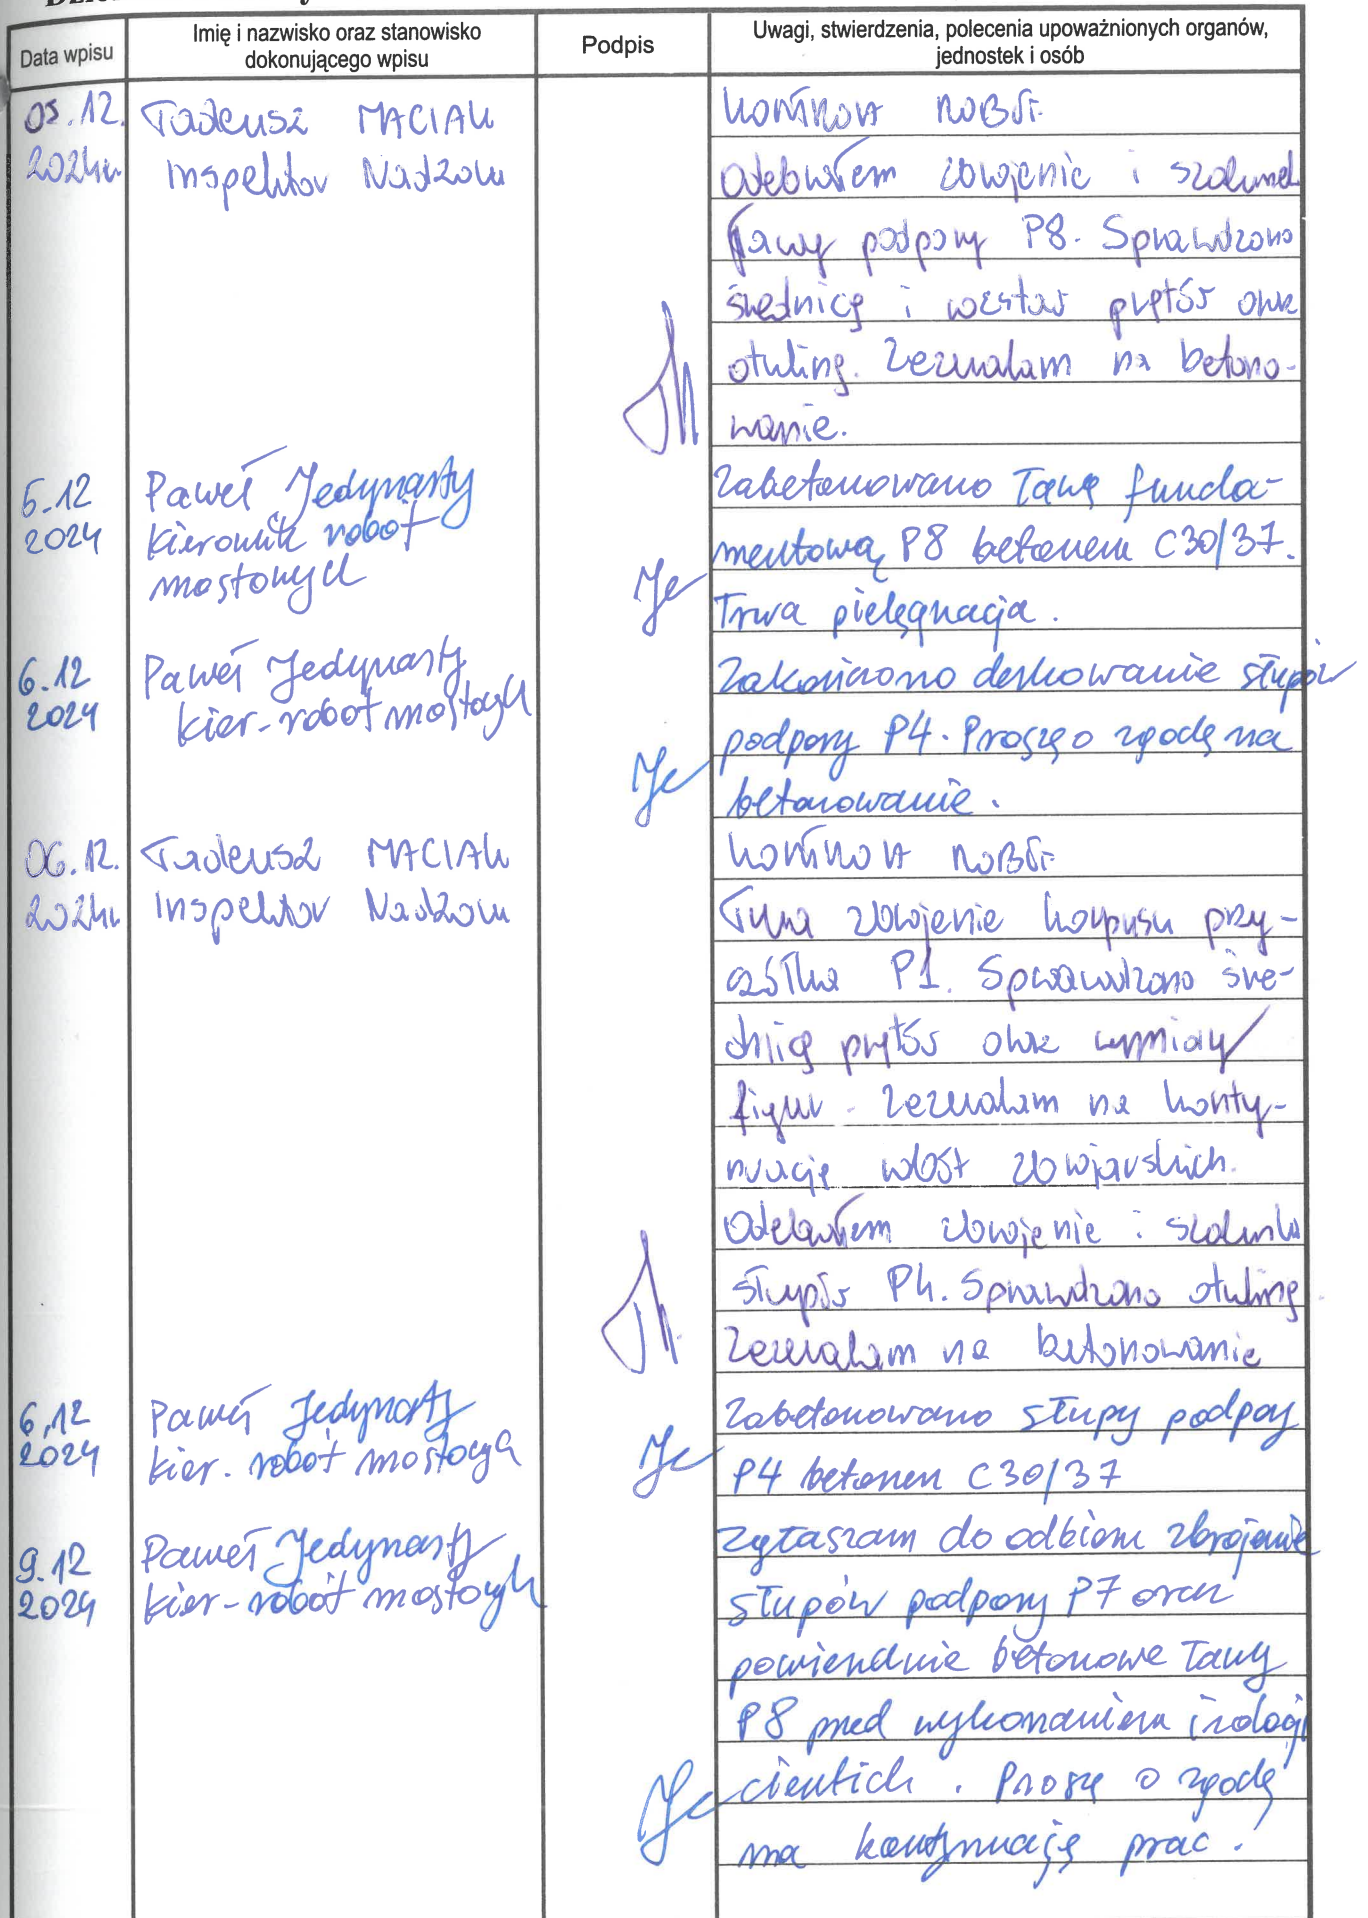 Data wpisu
Imię i nazwisko oraz stanowisko
dokonującego wpisu
Podpis
Uwagi, stwierdzenia, polecenia upoważnionych organów,
jednostek i osób
05.12.
2024r.
Tadeusz MACIAK
Inspektor Nadzoru
KONTROLA ROBÓT.
Odebrałem zbrojenie i szalunek
ławy podpory P8. Sprawdzono
średnicę i rozstaw prętów oraz
otulinę. Zezwalam na betono-
wanie.
5.12
2024
Paweł Jedynasty
kierownik robót
mostowych
Zabetonowano ławę funda-
mentową P8 betonem C30/37.
Trwa pielęgnacja.
6.12
2024
Paweł Jedynasty
kier. robót mostowych
Zakończono deskowanie słupów
podpory P4. Proszę o zgodę na
betonowanie.
06.12.
2024r.
Tadeusz MACIAK
Inspektor Nadzoru
KONTROLA ROBÓT
Trwa zbrojenie korpusu przy-
czółka P1. Sprawdzono śre-
dnicę prętów oraz wymiary
figur. Zezwalam na konty-
nuację robót zbrojarskich.
Odebrałem zbrojenie i szalunki
słupów P4. Sprawdzono otulinę
Zezwalam na betonowanie
6.12
2024
Paweł Jedynasty
kier. robót mostowych
Zabetonowano słupy podpory
P4 betonem C30/37
9.12
2024
Paweł Jedynasty
kier. robót mostowych
Zgłaszam do odbioru zbrojenie
słupów podpory P7 oraz
powierzchnie betonowe ławy
P8 przed wykonaniem izolacji
cienkich. Proszę o zgodę
na kontynuację prac.